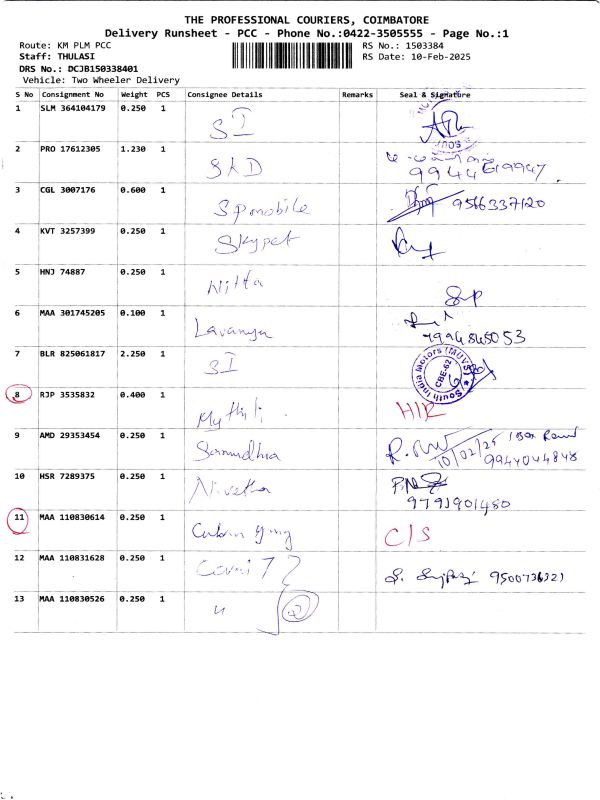 THE PROFESSIONAL COURIERS, COIMBATORE
Delivery Runsheet - PCC - Phone No.:0422-3505555 - Page No.:1
Route: KM PLM PCC
RS No.: 1503384
Staff: THULASI
RS Date: 10-Feb-2025
DRS No.: DCJB150338401
Vehicle: Two Wheeler Delivery
S No Consignment No Weight PCS Consignee Details Remarks Seal & Signature
1 SLM 364104179 0.250 1 SI
2 PRO 17612305 1.230 1 SKD
9944619947
3 CGL 3007176 0.600 1 Sp mobile 9566337120
4 KVT 3257399 0.250 1 Skypet
5 HNJ 74887 0.250 1 Nitta
6 MAA 301745205 0.100 1 Lavanya
7994845053
7 BLR 825061817 2.250 1 SI
South India Motors (MUVS)
CBE-62
8 RJP 3535832 0.400 1 Mythili H/R
9 AMD 29353454 0.250 1 10/02/25
9944044848
10 HSR 7289375 0.250 1 Nivetha
9791901480
11 MAA 110830614 0.250 1 C/S
12 MAA 110831628 0.250 1 9500736321
13 MAA 110830526 0.250 1